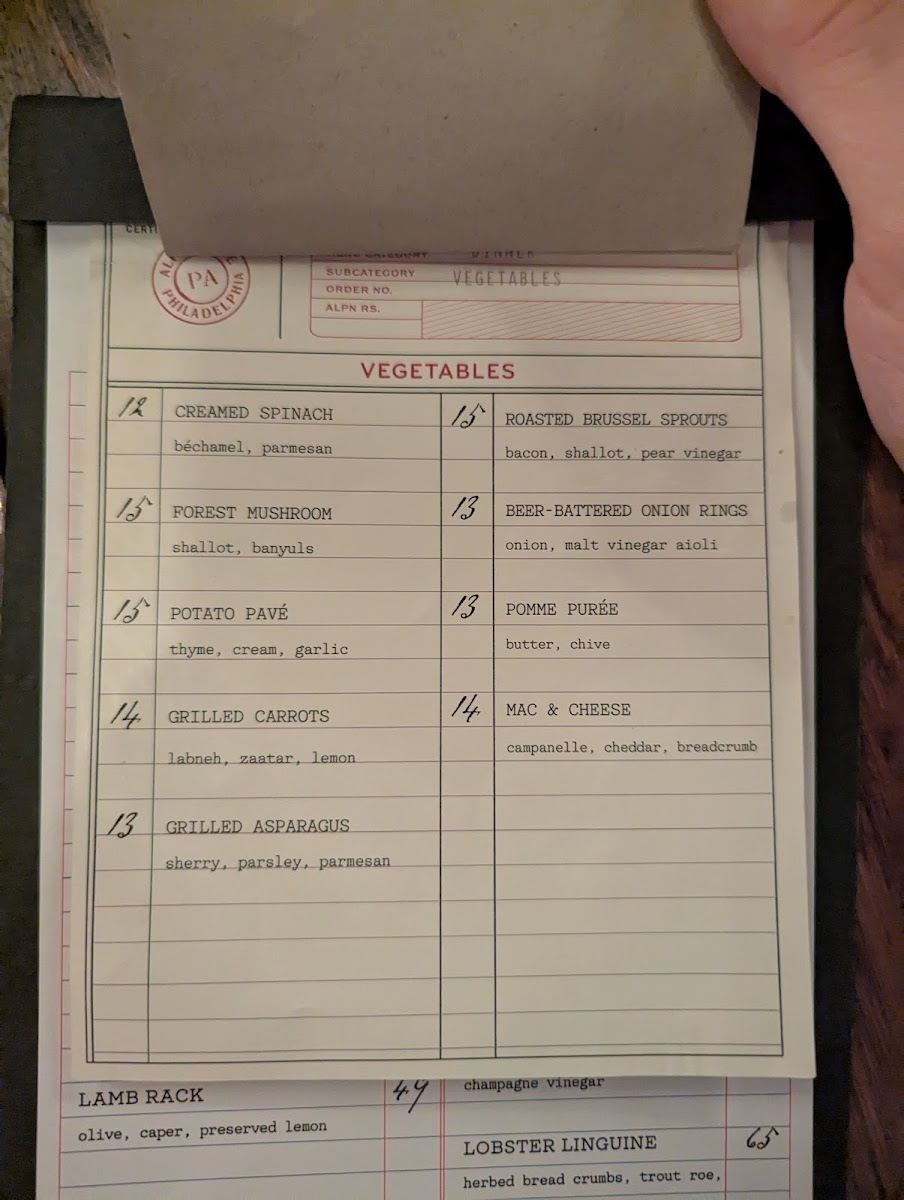 CERTI
PA
PHILADELPHIA
DINNER
SUBCATEGORY VEGETABLES
ORDER NO.
ALPN RS.
VEGETABLES
12 CREAMED SPINACH
béchamel, parmesan
15 FOREST MUSHROOM
shallot, banyuls
15 POTATO PAVÉ
thyme, cream, garlic
14 GRILLED CARROTS
labneh, zaatar, lemon
13 GRILLED ASPARAGUS
sherry, parsley, parmesan
15 ROASTED BRUSSEL SPROUTS
bacon, shallot, pear vinegar
13 BEER-BATTERED ONION RINGS
onion, malt vinegar aioli
13 POMME PURÉE
butter, chive
14 MAC & CHEESE
campanelle, cheddar, breadcrumb
LAMB RACK 49
olive, caper, preserved lemon
champagne vinegar
LOBSTER LINGUINE 65
herbed bread crumbs, trout roe,